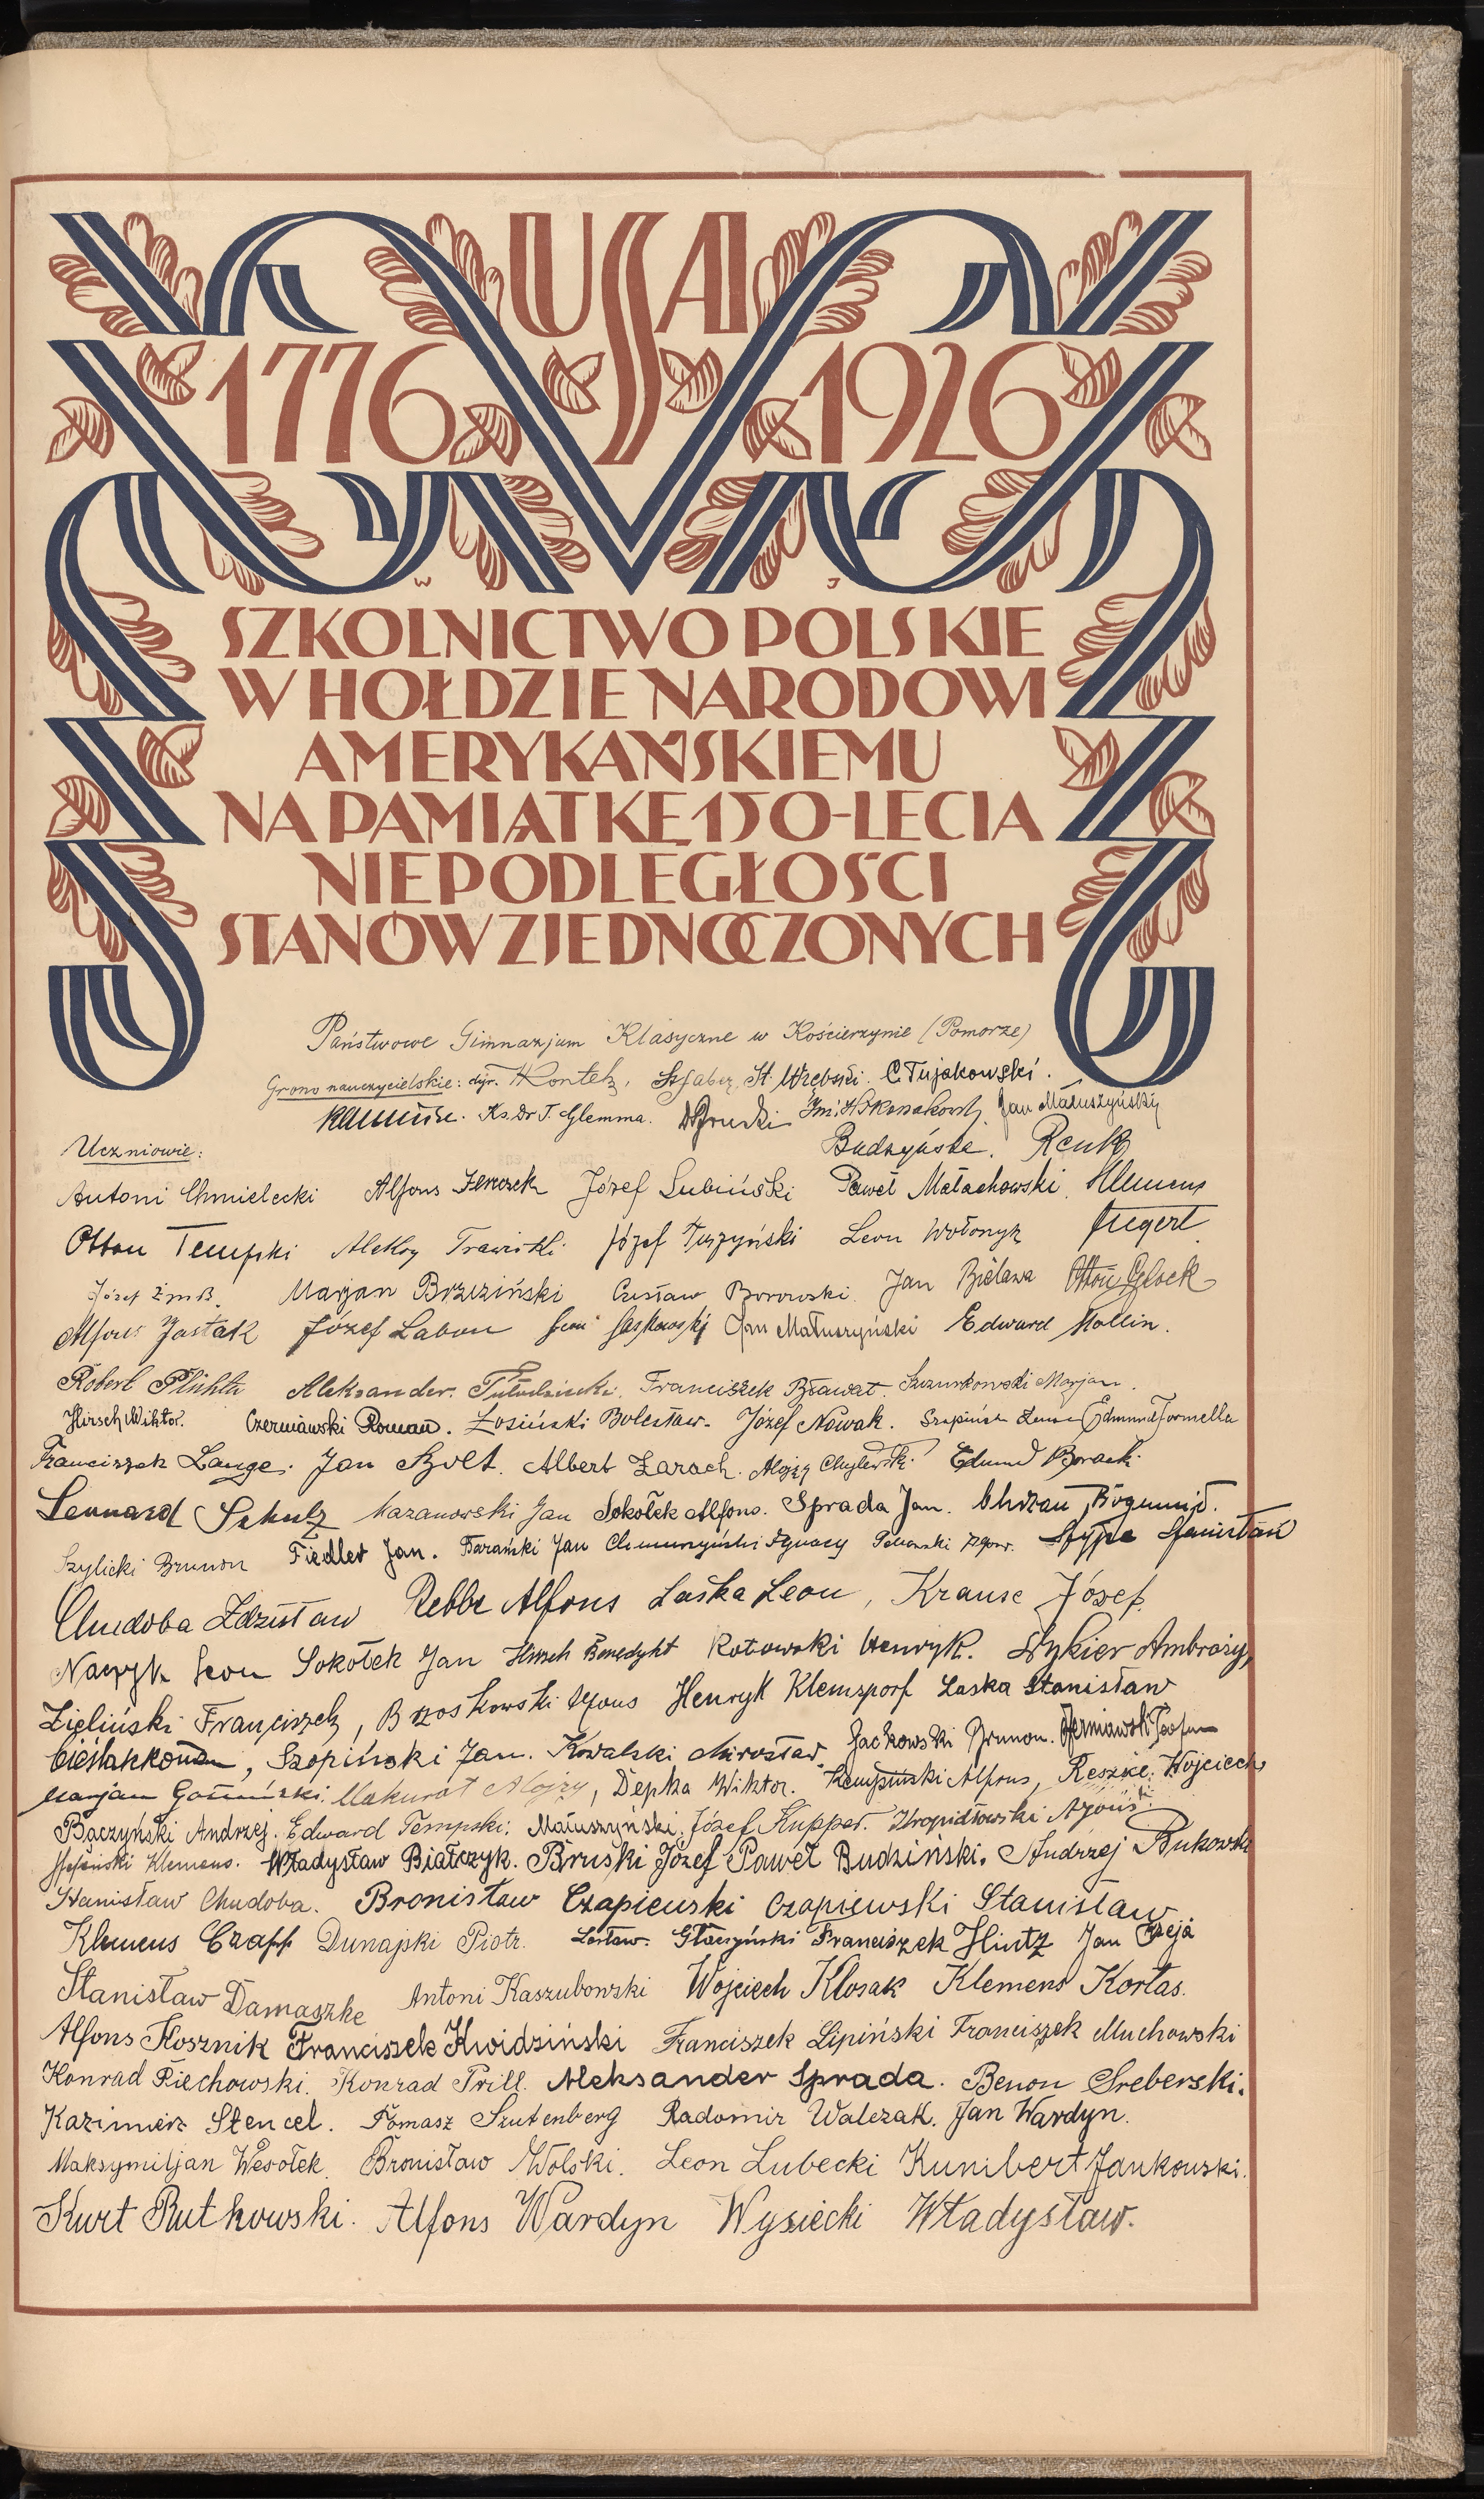 USA
1776 1926
W J
SZKOLNICTWO POLSKIE
W HOŁDZIE NARODOWI
AMERYKAŃSKIEMU
NA PAMIĄTKĘ 150-LECIA
NIEPODLEGŁOŚCI
STANÓW ZJEDNOCZONYCH
Państwowe Gimnazjum Klasyczne w Kościerzynie (Pomorze)
Grono nauczycielskie: dyr. St. C. Tujakowski.
Ks. Dr T. Glemma. Jan Matuszyński
Uczniowie:
Antoni Chmielecki Alfons Józef Lubiński Paweł Małachowski Klemens
Otton Tempski Józef Leon Wołonyk
Józef Marjan Brzeziński Czesław Borowski Jan Bielawa Otton Glock
Alfons Jastak Józef Labon Jan Matuszyński Edward Mollin.
Robert Plichta Aleksander Franciszek Bławat. Szczurkowski Marjan.
Hirsch Wiktor. Czerniawski Roman. Łosiński Bolesław. Józef Nowak. Edmund Formella
Franciszek Lange. Jan Szolt. Albert Żarach. Alojzy Edmund
Leonard Schulz Kazanowski Jan Sokołek Alfons. Sprada Jan. Chrzan Bogumił.
Szylicki Brunon Fiedler Jan. Barański Jan Ignacy Stypa Stanisław
Chudoba Zdzisław Rebbe Alfons Laska Leon, Krause Józef.
Leon Sokołek Jan Hirsch Benedykt Kotowski Henryk. Dykier Ambroży,
Zieliński Franciszek, Brzoskowski Alfons Henryk Klemsporf Laska Stanisław
Szopiński Jan. Kowalski Mirosław Jackowski Brunon.
Marjan Makurat Alojzy, Depka Wiktor. Kempiński Alfons, Reszke Wojciech
Bączyński Andrzej. Edward Tempski. Matuszyński Józef Kupper. Kropidłowski Alfons
Klemens. Władysław Białczyk. Bruski Józef Paweł Budziński. Andrzej Bukowski
Stanisław Chudoba. Bronisław Czapiewski Czapiewski Stanisław.
Klemens Czapp Dunajski Piotr. Franciszek Hintz Jan Czeja
Stanisław Damaszke Antoni Kaszubowski Wojciech Klosak Klemens Kortas.
Alfons Kosznik Franciszek Kwidziński Franciszek Lipiński Franciszek Muchowski
Konrad Piechowski. Konrad Prill. Aleksander Sprada. Benon Sreberski.
Kazimierz Stencel. Tomasz Szutenberg Radomir Walczak. Jan Wardyn.
Maksymiljan Wesołek. Bronisław Wolski. Leon Lubecki Kunibert Jankowski.
Kurt Rutkowski. Alfons Wardyn Wysiecki Władysław.